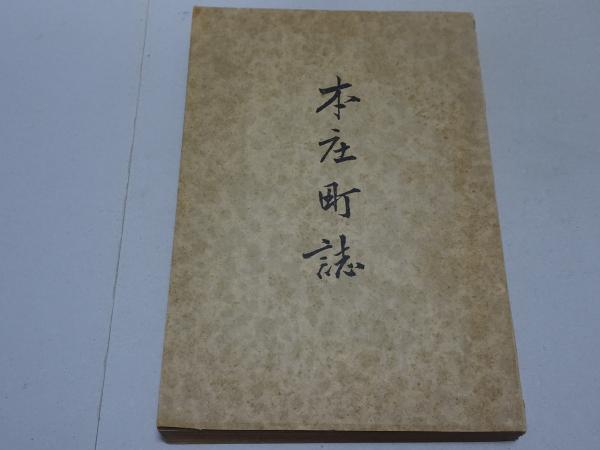 本庄町誌